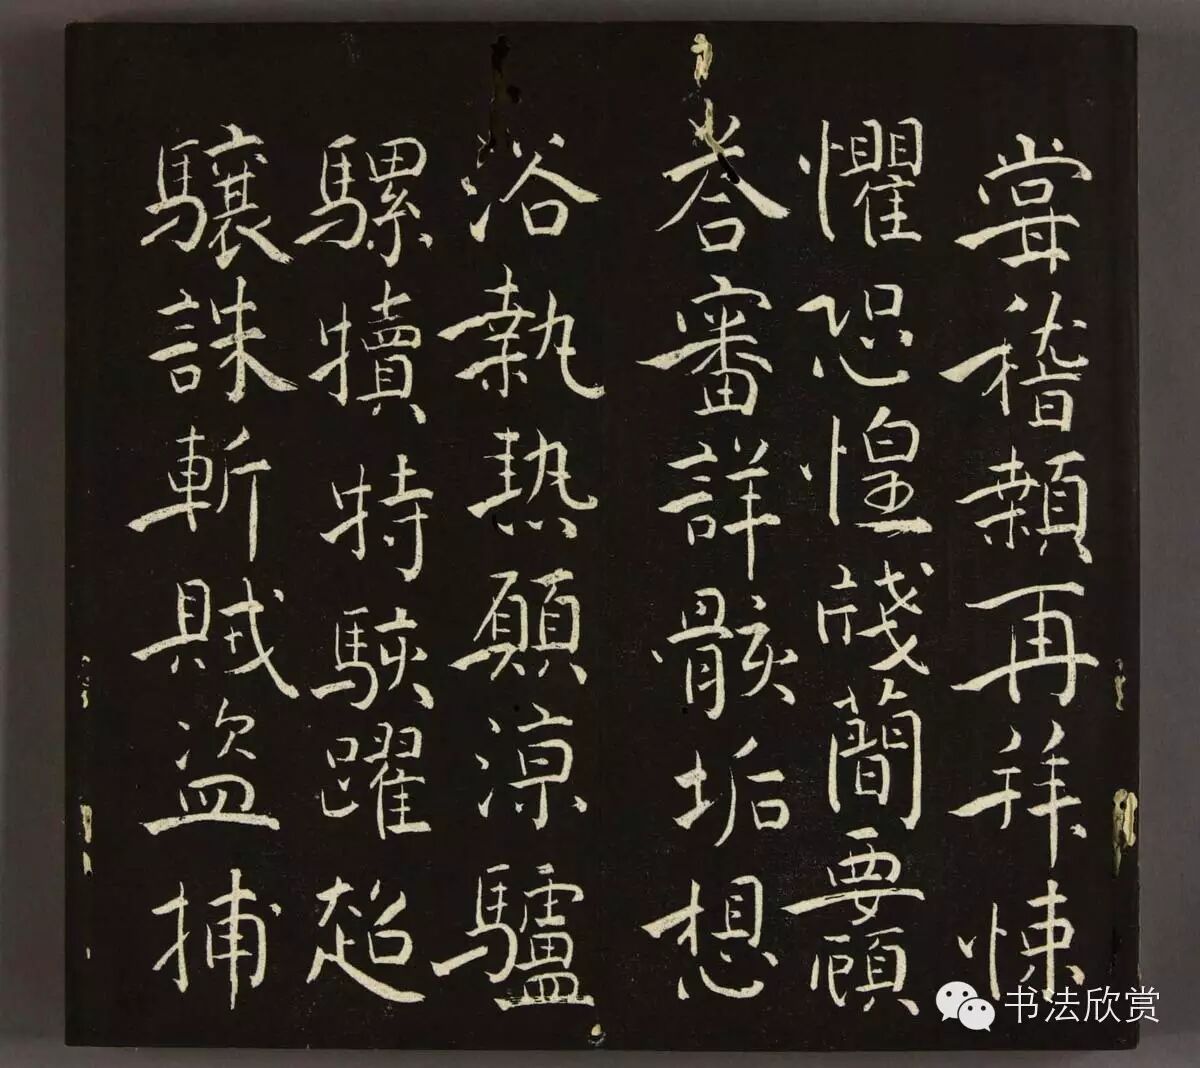 甞稽顙再拜悚
懼恐惶牋簡要顧
荅審詳骸垢想
浴執热願涼驢
騾犢特駭躍超
驤誅斬賊盗捕
书法欣赏